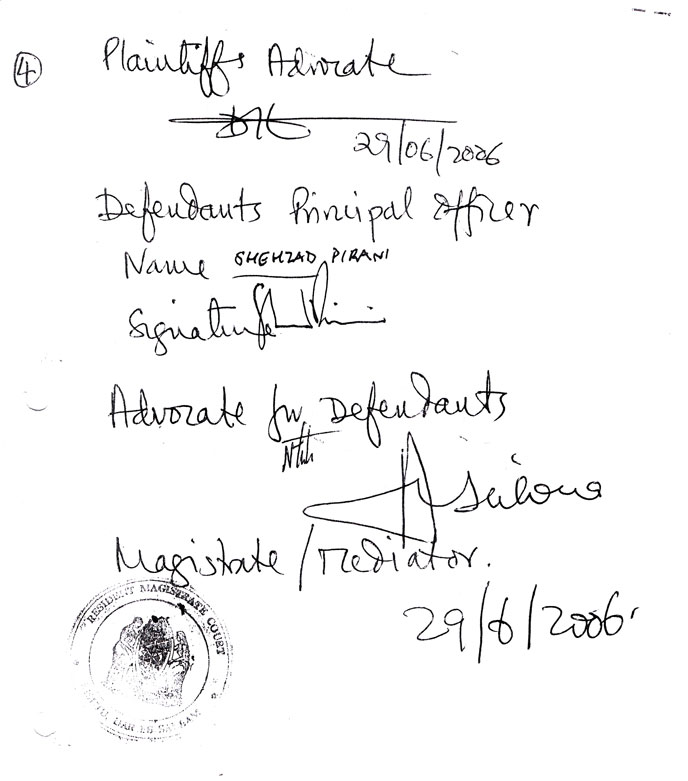 4
Plaintiffs Advocate
29/06/2006
Defendants Principal Officer
Name SHEHZAD PIRANI
Signature
Advocate for Defendants
Magistrate/Mediator.
29/6/2006.
RESIDENT MAGISTRATE COURT
DAR ES SALAAM